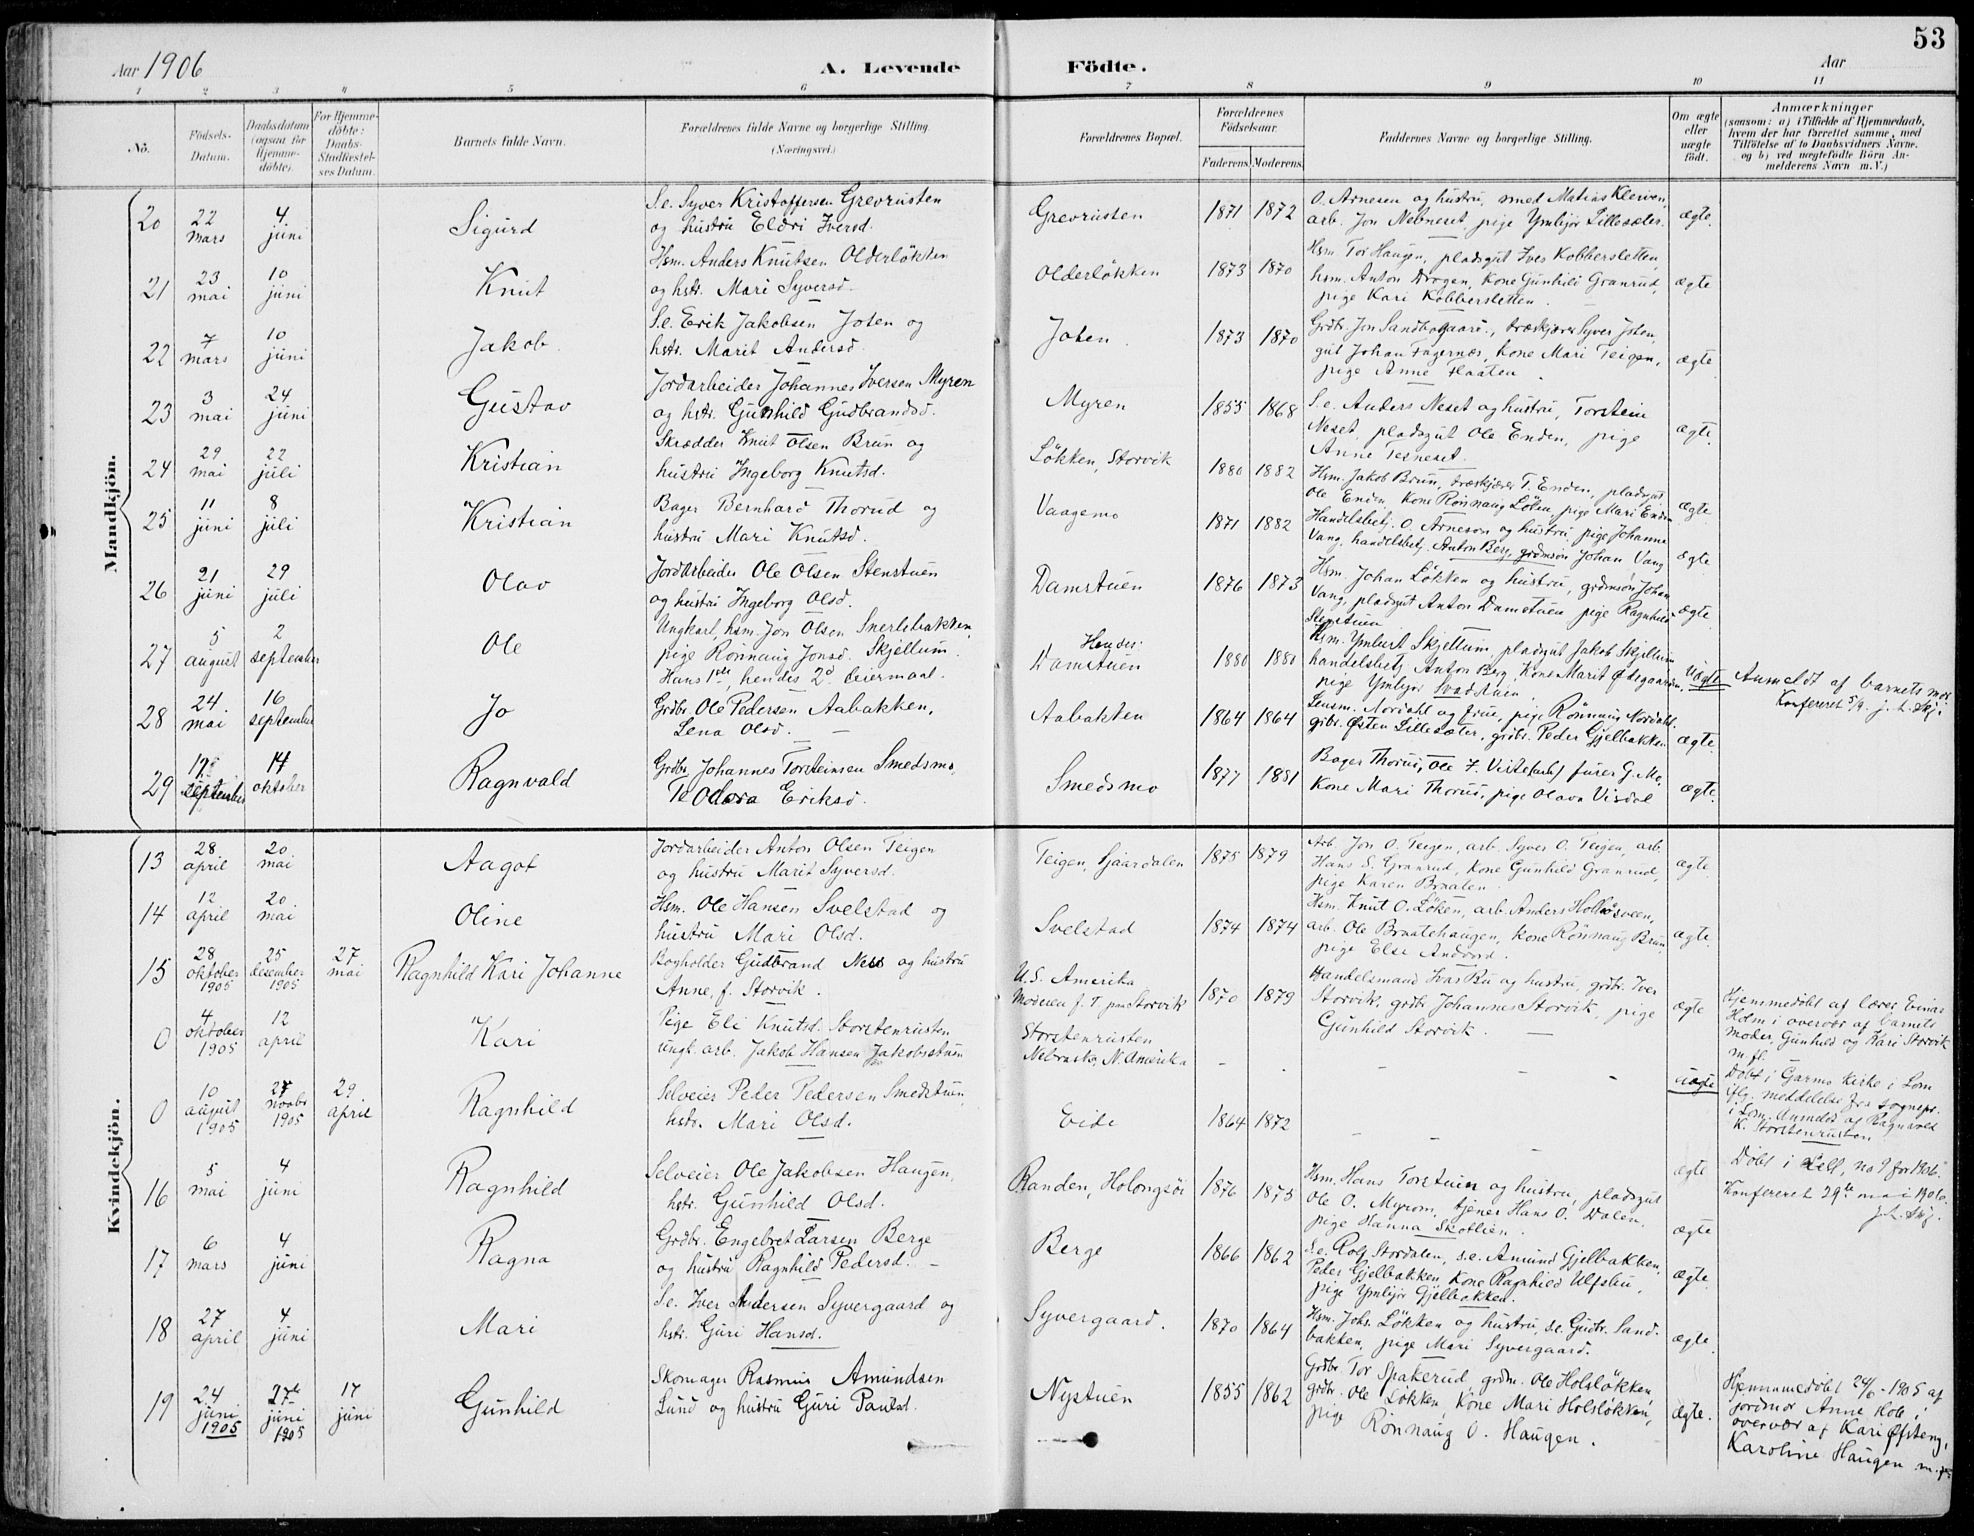 53
Aar 1906
A. Levende Födte.
Aar
1 2 3 4 5 6 7 8 9 10 11
No.
Födsels-Datum.
Daabsdatum (ogsaa for Hjemme-döbte).
For Hjemme-döbte: Daabs-Stadfæstel-ses Datum.
Barnets fulde Navn.
Forældrenes fulde Navne og borgerlige Stilling. (Næringsvei.)
Forældrenes Bopæl.
Forældrenes Födselsaar.
Faderens. Moderens.
Faddernes Navne og borgerlige Stilling.
Om ægte eller uægte födt.
Anmærkninger
(saasom: a) i Tilfælde af Hjemmedaab, hvem der har forrettet samme, med Tilföielse af to Daabsvidners Navne. og b) ved uægtefödte Börn An-melderens Navn m.V.)
Mandkjön.
20 22 mars 4. juni Sigurd
S.e. Syver Kristoffersen Grevrusten
og hustru Eldri Iversd.
Grevrusten 1871 1872
O. Arnesen og hustru, smed Matias Kleiven,
arb. Jon Nebneset, pige Ymbjør Lillesæter.
ægte.
21 23 mai 10 juni Knut
Hsm. Anders Knutsen Olderløkken
og hstr. Mari Syversd.
Olderløkken 1873 1870
Hsm Tor Haugen, pladsgut Iver Kobbersletten,
hsm. Anton Drogen, Kone Gunhild Granrud,
pige Kari Kobbersletten.
ægte
22 7 mars 10 juni Jakob.
S.e. Erik Jakobsen Joten og
hstr. Marit Andersd.
Joten. 1873 1870
Grdbr. Jon Sandbogaard., træskjærer Syver Joten,
gut Johan Fagernæs, Kone Mari Teigen,
pige Anne Flaaten.
ægte
23 3 mai 24 juni Gustav
Jordarbeider Johannes Iversen Myren
og hstr. Gunhild Gudbrandsd.
Myren 1855 1868
S.e. Anders Neset og hustru, Torstein
Neset, pladsgut Ole Enden, pige
Anne Tesneset.
ægte.
24 29 mai 22 juli Kristian
Skrædder Knut Olsen Brun og
hustru Ingeborg Knutsd.
Løkken, Storvik 1880 1882
Hsm. Jakob Brun, træskjærer T. Enden, pladsgut
Ole Enden Kone Rønnaug Løken, pige Mari Enden
ægte
25 11 juni 8 juli Kristian
Bager Bernhard Thorud og
hustru Mari Knutsd.
Vaagemo 1871 1882
Handelsbetj. O. Arneson og hustru, pige Johanne
Vang, handelsbetj. Anton Berg, grdmsøn Johan Vang
ægte
26 21 juni 29 juli Olav
Jordarbeider Ole Olsen Stenstuen
og hustru Ingeborg Olsd.
Damstuen 1876 1873
Hsm. Johan Løkken og hustru, grdmsøn Johan
Vang, pladsgut Anton Damstuen pige Ragnhild
Stenstuen
ægte
27 5 august 2 september Ole
Ungkarl, hsm. Jon Olsen Snerlebakken,
pige Rønnaug Jonsd. Skjellum.
Hans 1ste, hendes 2d leiermaal.
Hendes:
Damstuen 1880 1880
Hsm. Ymbert Skjellum, pladsgut Jakob Skjellum
handelsbetj Anton Berg, Kone Marit Ødegaarden,
pige Ymbjør Svadstuen.
Uægte
Anmeldt af barnets mor
Konfereret 5/9. J. L. Skj.
28 24 mai 16 september Jo
Grdbr. Ole Pedersen Aabakken,
Lena Olsd.
Aabakken 1864 1864
Lensm. Nordahl og frue, pige Rønnaug Nordahl
grbr. Østen Lillesæter, grdbr. Peder Gjelbakken
ægte.
29 19 september 14 oktober Ragnvald
Grdbr. Johannes Torsteinsen Smedsmo,
Teodora Eriksd.
Smedsmo 1877 1881
Bager Thorud, Ole F. furer G. Mo,
Kone Mari Thorud, pige Olava Visdal
ægte.
Kvindekjön.
13 28 april 20 mai Aagot
Jordarbeider Anton Olsen Teigen
og hustru Marit Syversd.
Teigen, Sjaardalen 1875 1879
Arb. Jon O. Teigen, arb. Syver O. Teigen, arb.
Hans S. Granrud, Kone Gunhild Granrud,
pige Karen Braaten.
ægte.
14 12 april 20 mai Oline
Hsm. Ole Hansen Svelstad og
hustru Mari Olsd.
Svelstad 1874 1874
Hsm. Knut O. Løken, arb. Anders Holløsveen,
arb. Ole Braatehaugen, Kone Rønnaug Brun,
pige Else Andvord.
ægte.
15 28 oktober 1905 25 desember 1905 27 mai Ragnhild Kari Johanne
Bogholder Gudbrand Ness og hustru
Anne, f. Storvik.
U.S. Amerika
Moderen f. T. paa Storvik 1870 1879
Handelsmand Ivar Bu og hustru, grdbr. Iver
Storvik, grdbr Johannes Storvik, pige
Gunhild Storvik.
ægte
Hjemmedøbt af lærer Einar
Holm i overvær af barnets
moder, Gunhild og Kari Storvik
m. fl.
0 4 oktober 1905 12 april Kari
Pige Eli Knutsd. Storstenrusten
ungk. arb. Jakob Hansen Jakobsstuen
Storstenrusten
Nebraska, N. Amerika
uægte
Døbt i Garmo kirke i Lom
iflg. meddelelse fra sognepr.
i Lom. Anmeldt af Ragnvald
K. Storstenrusten
0 10 august 1905 27 novbr 1905 29 april Ragnhild
Selveier Peder Pedersen Smedstuen,
hstr. Mari Olsd.
Eide 1864 1872
ægte
Døbt i Lesj. no 9 for 1906
Konfereret 29de mai 1906.
J. L. Skj.
16 5 mai 4 juni Ragnhild
Selveier Ole Jakobsen Haugen,
hstr. Gunhild Olsd.
Randen, Holongsøi 1876 1875
Hsm. Hans Torstuen og hustru, pladsgut
Ole O. Myrom, tjener Hans O. Dalen,
pige Hanna Skotlien.
ægte
17 6 mars 4 juni Ragna
Grdbr. Engebret Larsen Berge
og hustru Ragnhild Pedersd.
Berge 1866 1862
S.e. Rolf Stordalen, s.e. Amund Gjelbakken,
Peder Gjelbakken, Kone Ragnhild Ulfsbu,
pige Ymbjør Gjelbakken.
ægte.
18 27 april 4 juni Mari
S.e. Iver Andersen Syvergaard og
hstr. Guri Hansd.
Syvergaard. 1870 1864
Hsm. Johs. Løkken og hustru, s.e. Gudbr. Sand-
bakken, pige Mari Syvergaard.
ægte.
19 24 juni 1905 27de juni 1905 17 juni Gunhild
Skomager Rasmus Amundsen
Lund og hustru Guri Paulsd.
Nystuen 1855 1862
Grdbr Tor Spakerud, grdm. Ole Holsløkken,
grdbr. Ole Løkken, Kone Mari Holsløkken,
pige Rønnaug O. Haugen.
ægte.
Hjemmedøbt 24/6 - 1905 af
jordmor Anne Kole i
overvær af Kari Øfsteng,
Karoline Haugen m. fl.